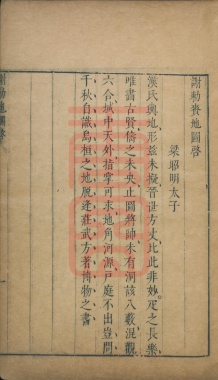 謝勅賚地圖啓
梁昭明太子
漢氏輿地形兹未擬晉世方丈比此非妙匹之長樂
唯畫古賢儔之未央止圖將帥未有洞該八藪混觀
六合域中天外指掌可求地角河源户庭不出豈問
千秋自識烏桓之地脱逢莊武方著博物之書
謝勅地圖啓